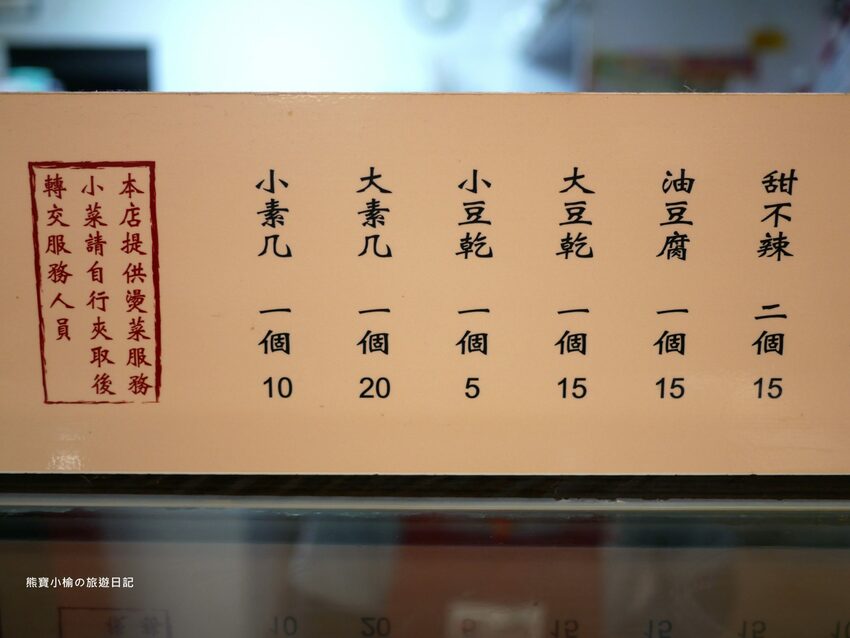 甜不辣 二個 15
油豆腐 一個 15
大豆乾 一個 15
小豆乾 一個 5
大素几 一個 20
小素几 一個 10
本店提供燙菜服務
小菜請自行夾取後
轉交服務人員
熊寶小榆の旅遊日記